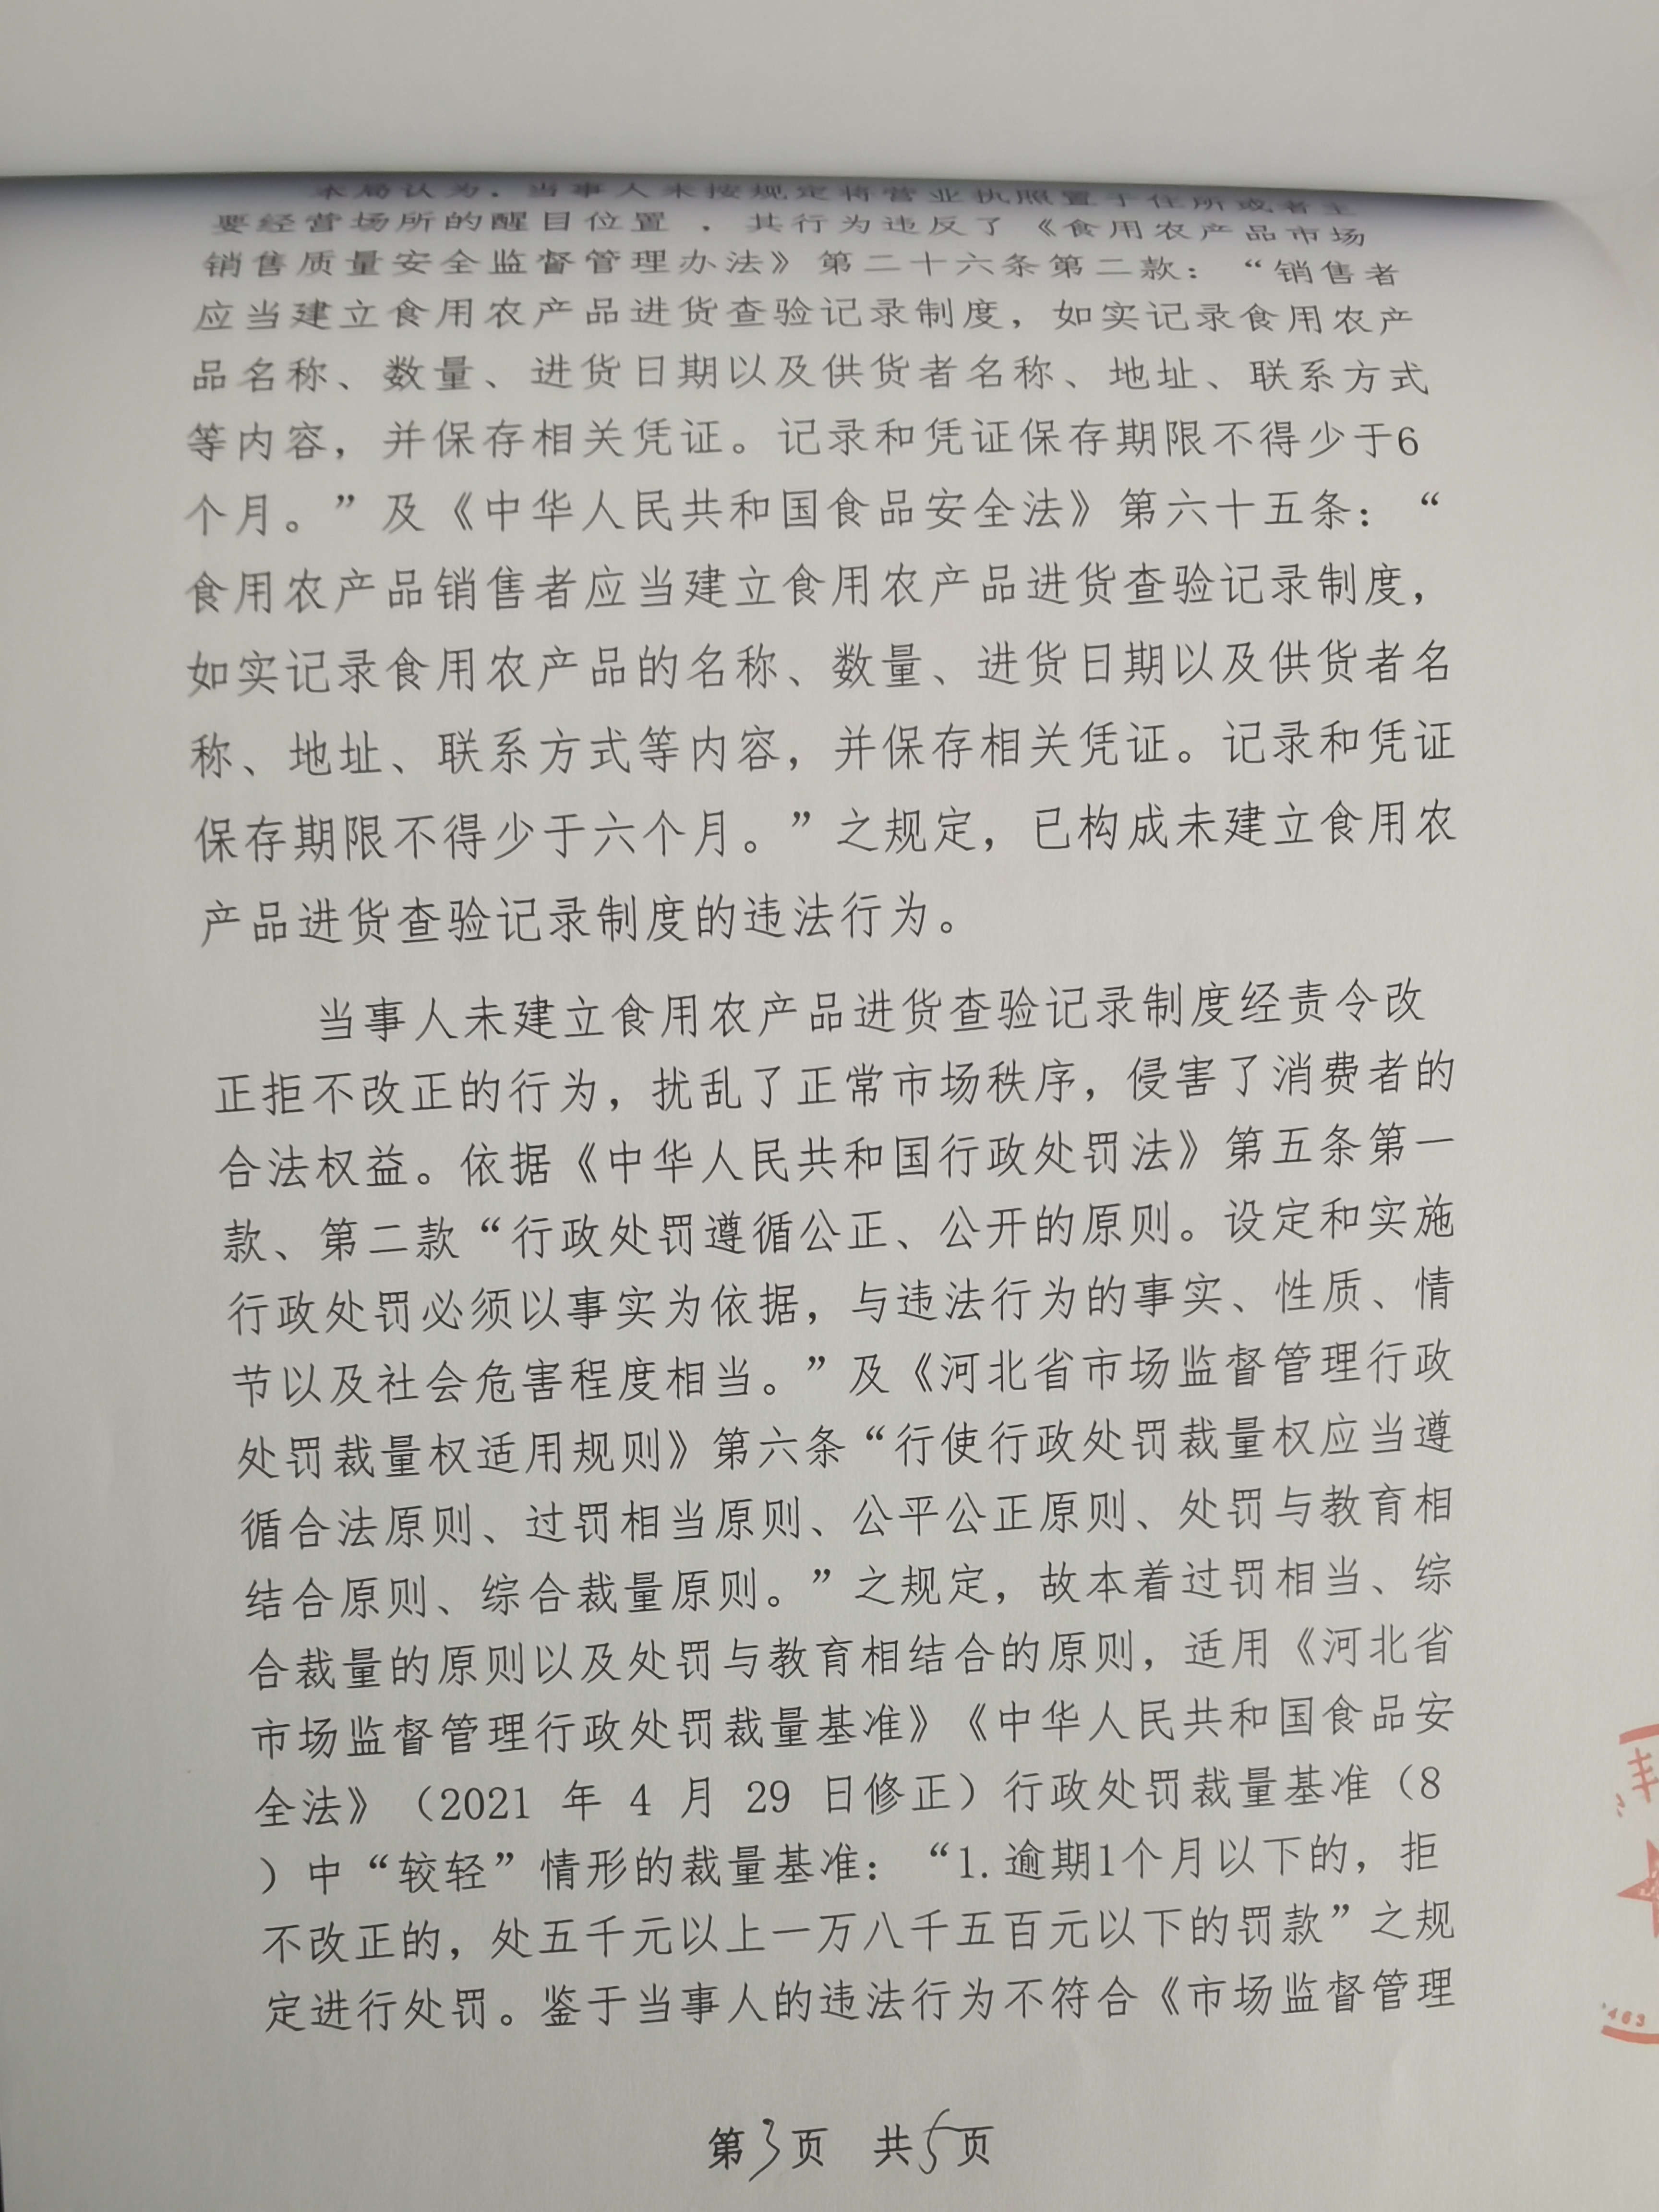 本局认为，当事人未按规定将营业执照置于住所或者主
要经营场所的醒目位置 ，其行为违反了《食用农产品市场
销售质量安全监督管理办法》第二十六条第二款：“销售者
应当建立食用农产品进货查验记录制度，如实记录食用农产
品名称、数量、进货日期以及供货者名称、地址、联系方式
等内容，并保存相关凭证。记录和凭证保存期限不得少于6
个月。”及《中华人民共和国食品安全法》第六十五条：“
食用农产品销售者应当建立食用农产品进货查验记录制度，
如实记录食用农产品的名称、数量、进货日期以及供货者名
称、地址、联系方式等内容，并保存相关凭证。记录和凭证
保存期限不得少于六个月。”之规定，已构成未建立食用农
产品进货查验记录制度的违法行为。
当事人未建立食用农产品进货查验记录制度经责令改
正拒不改正的行为，扰乱了正常市场秩序，侵害了消费者的
合法权益。依据《中华人民共和国行政处罚法》第五条第一
款、第二款“行政处罚遵循公正、公开的原则。设定和实施
行政处罚必须以事实为依据，与违法行为的事实、性质、情
节以及社会危害程度相当。”及《河北省市场监督管理行政
处罚裁量权适用规则》第六条“行使行政处罚裁量权应当遵
循合法原则、过罚相当原则、公平公正原则、处罚与教育相
结合原则、综合裁量原则。”之规定，故本着过罚相当、综
合裁量的原则以及处罚与教育相结合的原则，适用《河北省
市场监督管理行政处罚裁量基准》《中华人民共和国食品安
全法》（2021 年 4 月 29 日修正）行政处罚裁量基准（8
）中“较轻”情形的裁量基准：“1.逾期1个月以下的，拒
不改正的，处五千元以上一万八千五百元以下的罚款”之规
定进行处罚。鉴于当事人的违法行为不符合《市场监督管理
463
第3页 共5页